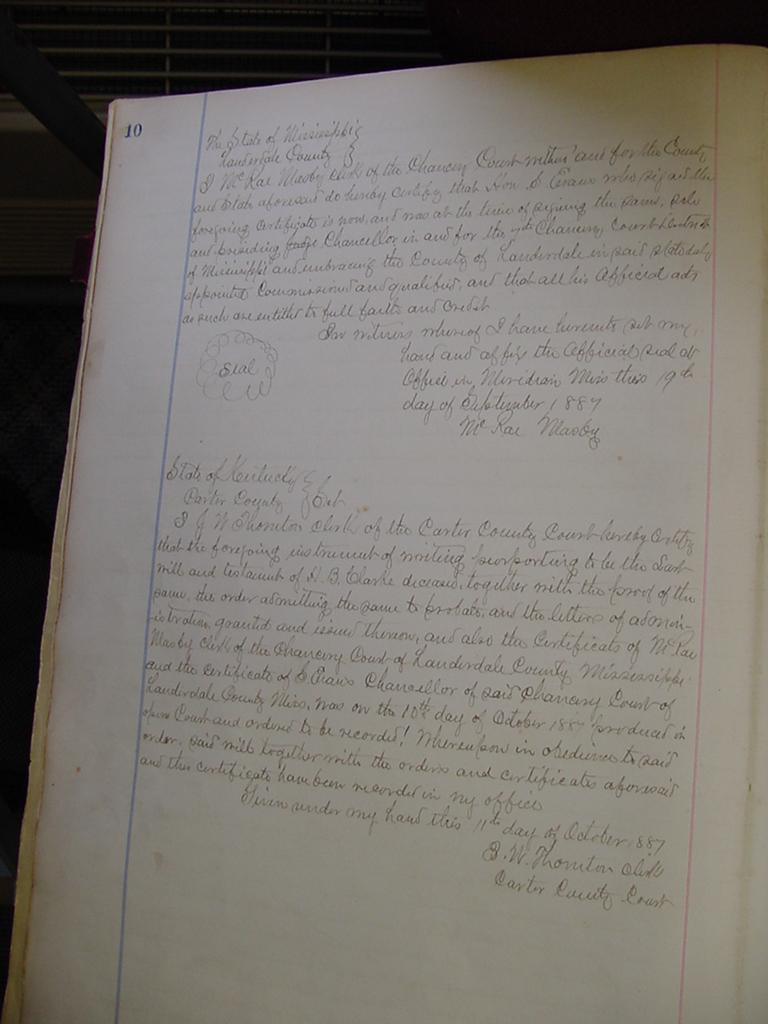 10
The State of Mississippi
Lauderdale County
I McRae Mosby clerk of the Chancery Court within and for the County
and State aforesaid do hereby certify that Hon S Evans who signed the
foregoing certificate is now, and was at the time of signing the same, sole
and presiding Chancellor in and for the Chancery Court District
of Mississippi and embracing the County of Lauderdale in said state duly
appointed Commissioned and qualified, and that all his official acts
as such are entitled to full faith and credit
In witness whereof I have hereunto set my
hand and affix the official seal at
Office in Meridian Miss this 19th
day of September 1887
McRae Mosby
Seal
State of Kentucky
Carter County Sct
I J W Thornton clerk of the Carter County Court hereby certify
that the foregoing instrument of writing purporting to be the Last
will and testament of H. B. Clarke deceased, together with the proof of the
same, the order admitting the same to probate, and the letters of admin-
istration, granted and issued thereon, and also the certificate of McRae
Mosby clerk of the Chancery Court of Lauderdale County Mississippi
and the certificate of S Evans Chancellor of said Chancery Court of
Lauderdale County Miss, was on the 10th day of October 1887 produced in
open Court and ordered to be recorded! Whereupon in obedience to said
order, said will together with the orders and certificates aforesaid
and this certificate have been recorded in my office
Given under my hand this 11th day of October 1887
J. W. Thornton Clerk
Carter County Court